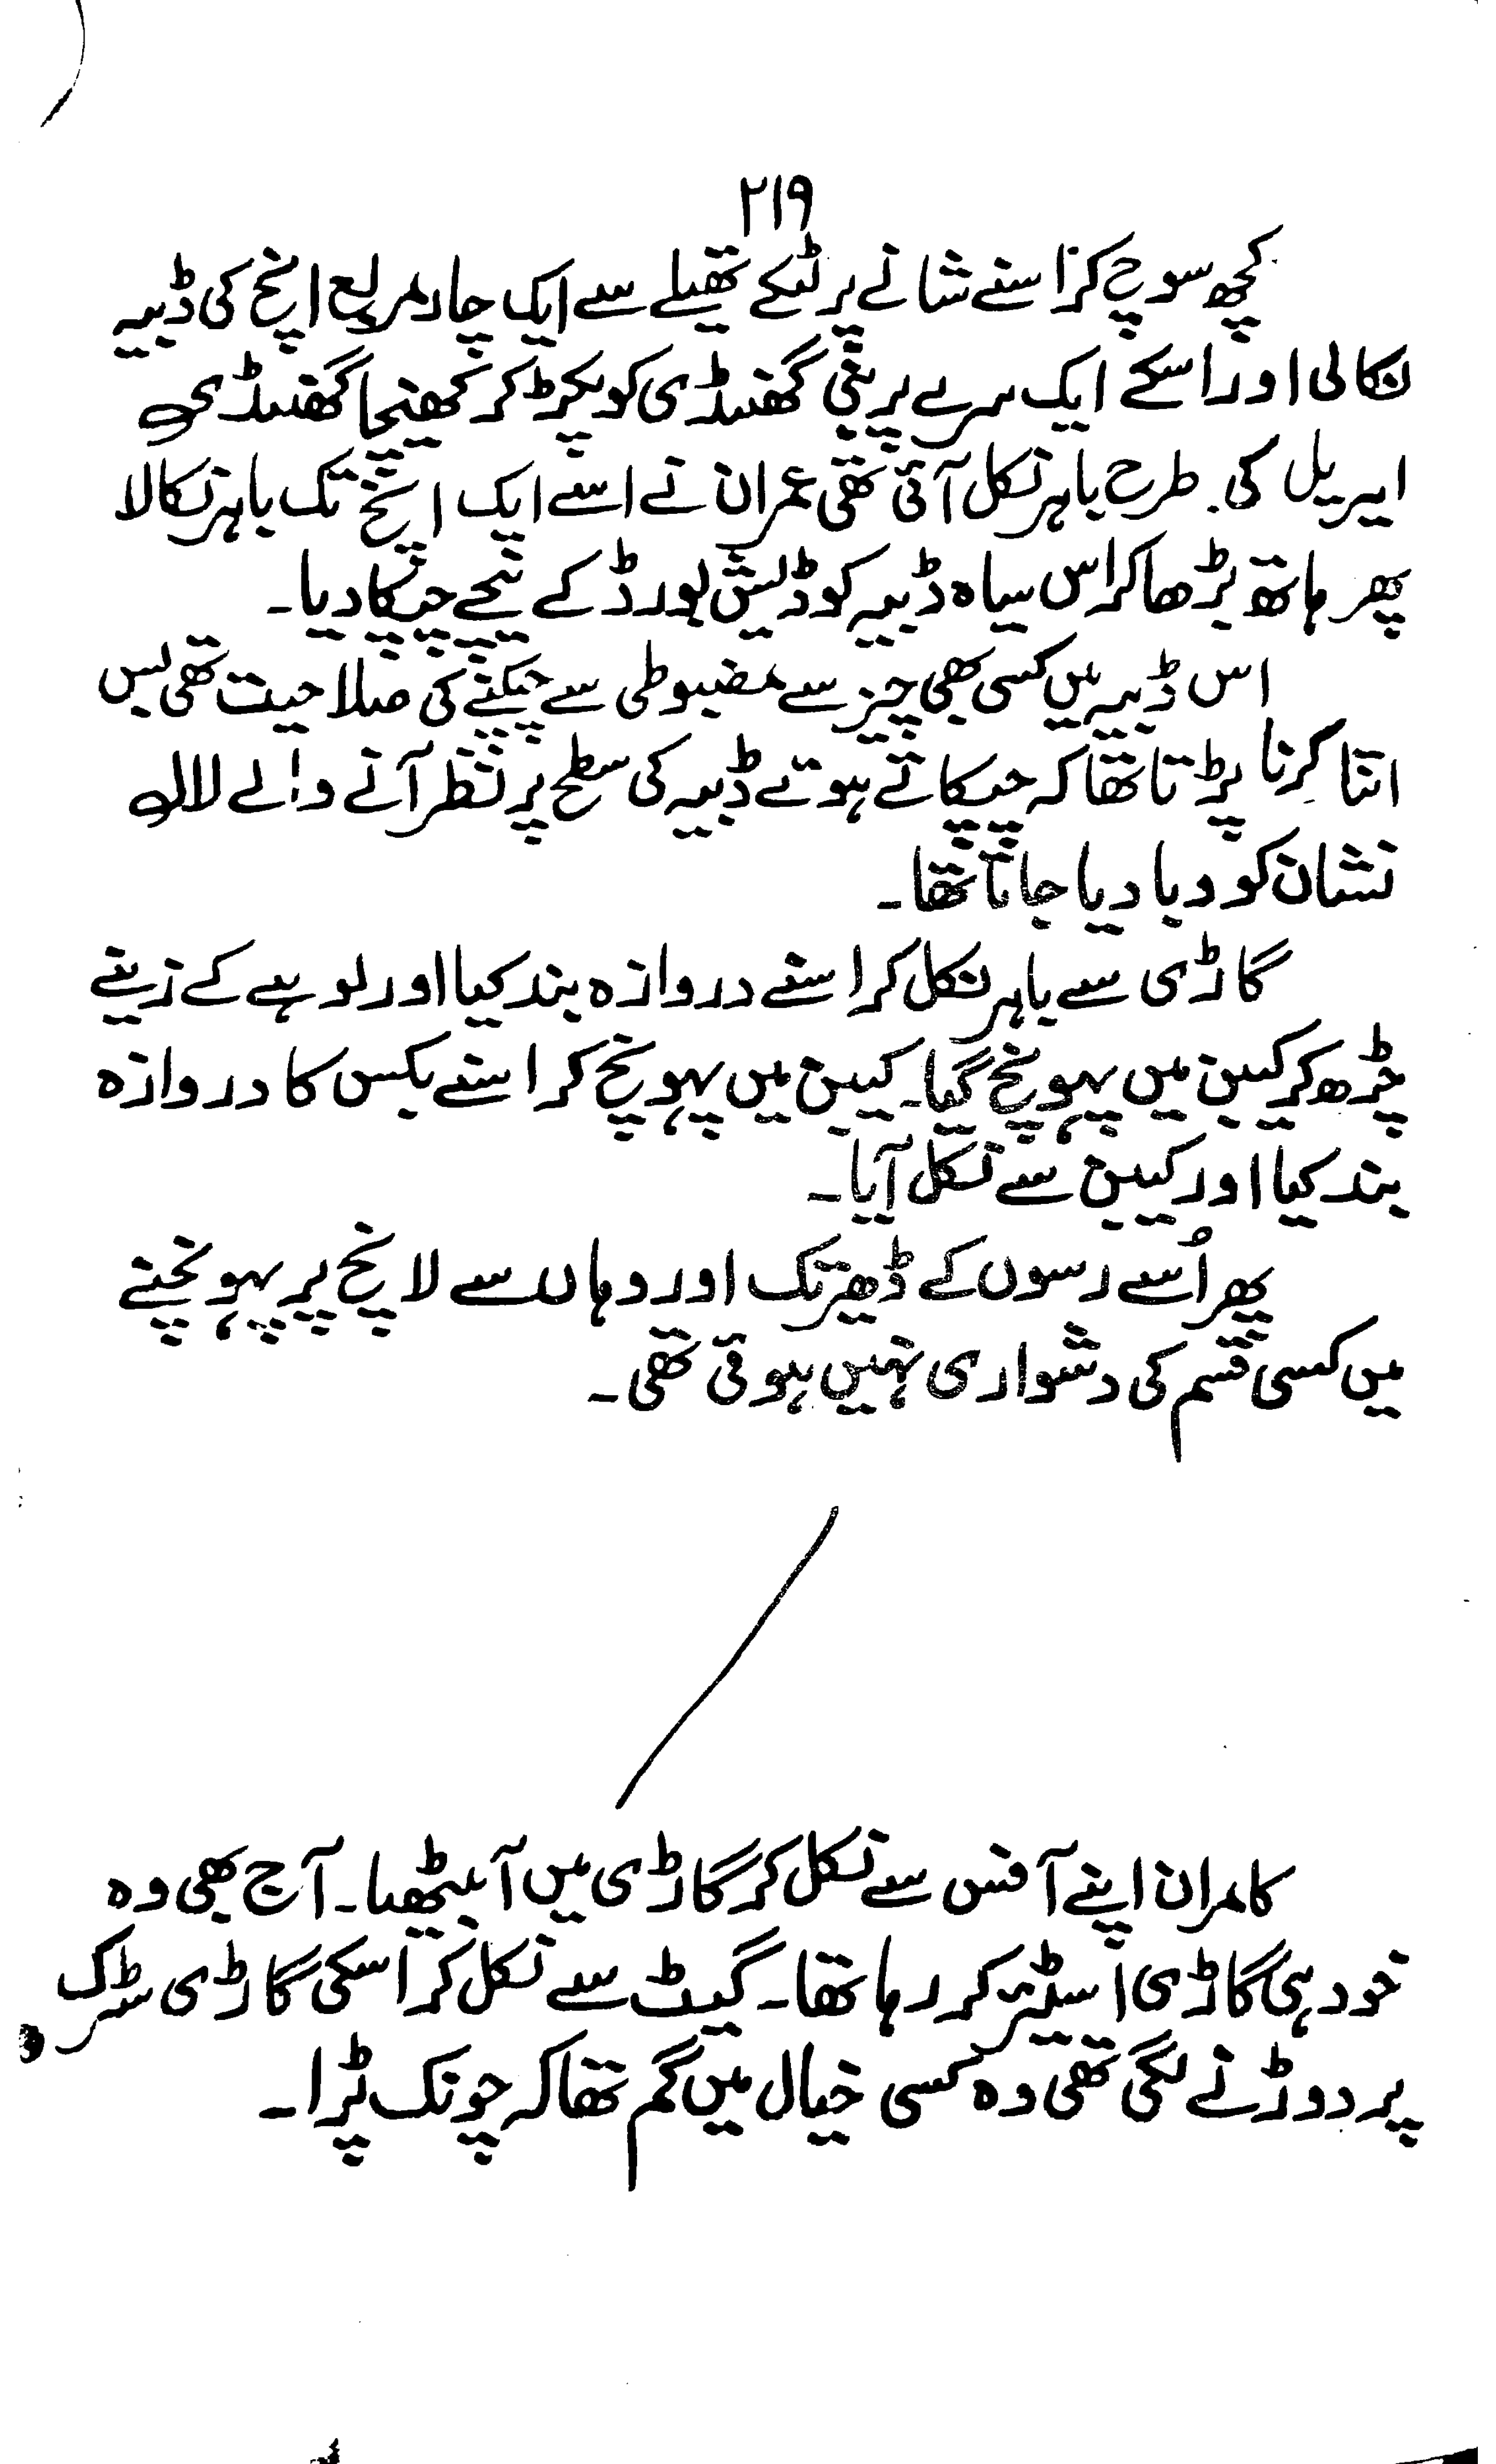 ۲۱۹
کچھ سوچ کر اسنے شانے پر لٹکے تھیلے سے ایک چار مربع انچ کی ڈبیہ
نکالی اور اسکے ایک سرے پر بنی گھنڈی کو پکڑ کر کھینچا گھنڈی
ایریل کی طرح باہر نکل آئی تھی عمران نے اسے ایک انچ تک باہر نکالا
پھر ہاتھ بڑھا کر اس سیاہ ڈبیہ کو ڈیش بورڈ کے نیچے چپکا دیا۔
اس ڈبیہ میں کسی بھی چیز سے مضبوطی سے چپکنے کی صلاحیت تھی بس
اتنا کرنا پڑتا تھا کہ چپکاتے ہوتے ڈبیہ کی سطح پر نظر آنے والے لال
نشان کو دبا دیا جاتا تھا۔
گاڑی سے باہر نکل کر اسنے دروازہ بند کیا اور لوہے کے زینے
چڑھ کر کیبن میں پہونچ گیا۔ کیبن میں پہونچ کر اسنے بکس کا دروازہ
بند کیا اور کیبن سے نکل آیا۔
پھر اُسے رسوں کے ڈھیر تک اور وہاں سے لانچ پر پہونچنے
میں کسی قسم کی دشواری نہیں ہوتی تھی۔
کامران اپنے آفس سے نکل کر گاڑی میں آ بیٹھا۔ آج بھی وہ
خود ہی گاڑی اسٹیر کر رہا تھا۔ گیٹ سے نکل کر اسکی گاڑی سڑک
پر دوڑنے لگی تھی وہ کسی خیال میں گم تھا کہ چونک پڑا۔